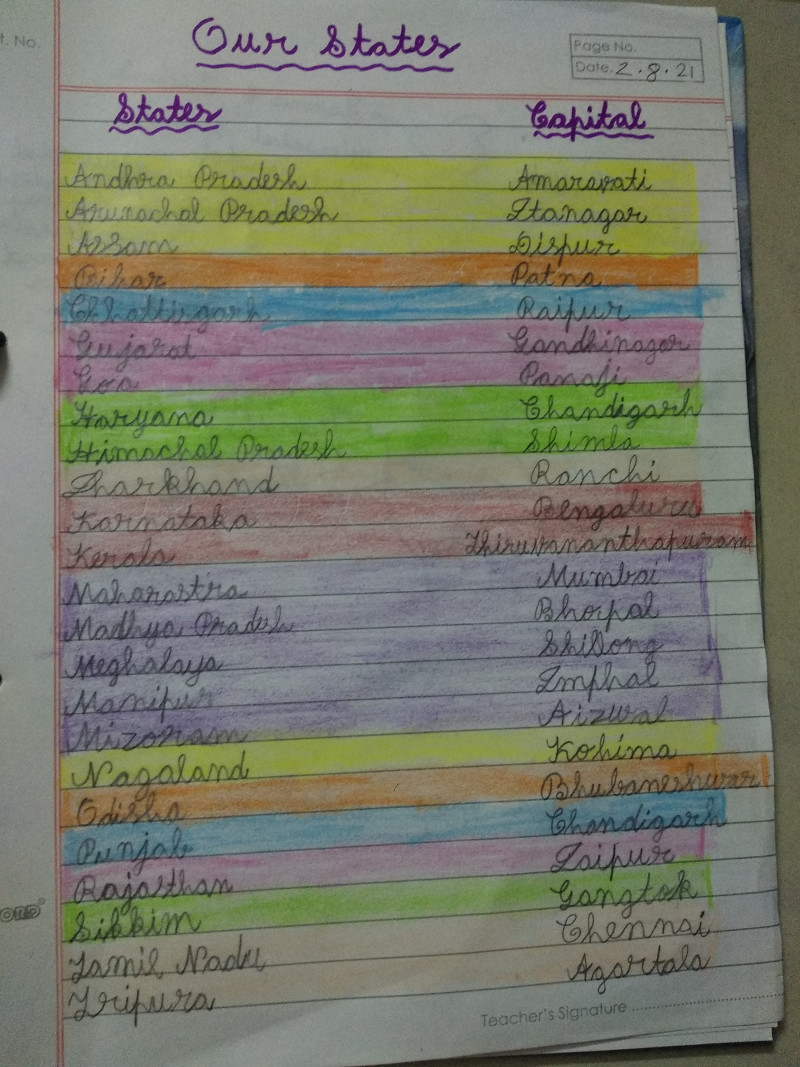 t. No.
Our States
Page No.
Date. 2.8.21
States Capital
Andhra Pradesh Amaravati
Arunachal Pradesh Itanagar
Assam Dispur
Bihar Patna
Chhattisgarh Raipur
Gujarat Gandhinagar
Goa Panaji
Haryana Chandigarh
Himachal Pradesh Shimla
Jharkhand Ranchi
Karnataka Bengaluru
Kerala Thiruvananthapuram
Maharastra Mumbai
Madhya Pradesh Bhopal
Meghalaya Shillong
Manipur Imphal
Mizoram Aizwal
Nagaland Kohima
Odisha Bhubaneshwar
Punjab Chandigarh
Rajasthan Jaipur
Sikkim Gangtok
Tamil Nadu Chennai
Tripura Agartala
Teacher's Signature